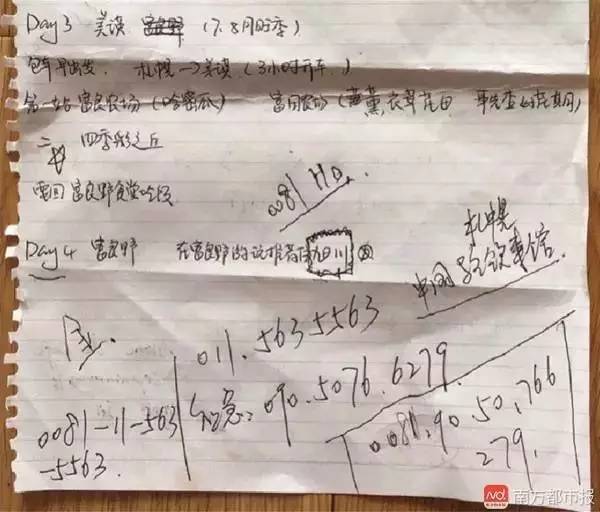 Day 3 美瑛 富良野 (7.8月旺季)
早出发. 札幌→美瑛 (3小时开车.)
第一站 富良农场 (哈密瓜) 富田农场 (薰衣草花田 事先查好花期)
二 四季彩之丘
富良野食堂吃饭
0081 HD.
Day 4 富良野 在富良野的话推荐 旭川
札幌
中国总领事馆.
011.563 5563
0081-11-563
-5563.
090.5076.6279
0081.90.50.766
279.
南方都市报